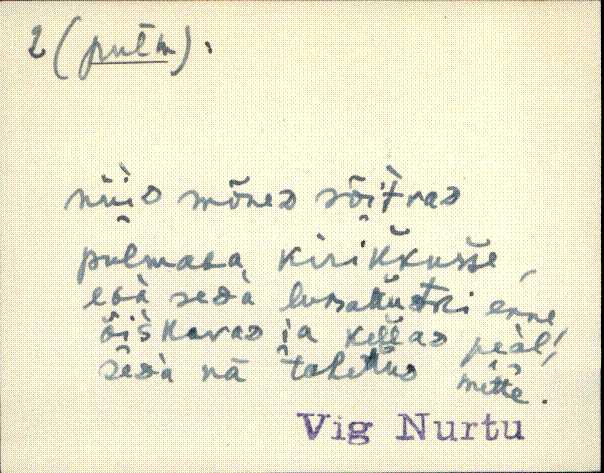 2 (pulm).
nüiᴅ mõneᴅ sõitvaᴅ
pulmaᴅa, kirikkusse,
eɢà seᴅà lursakustki enne
õiskavaᴅ ja kellaᴅ peàl,
seᴅà nā tahettus mitte.
Vig Nurtu